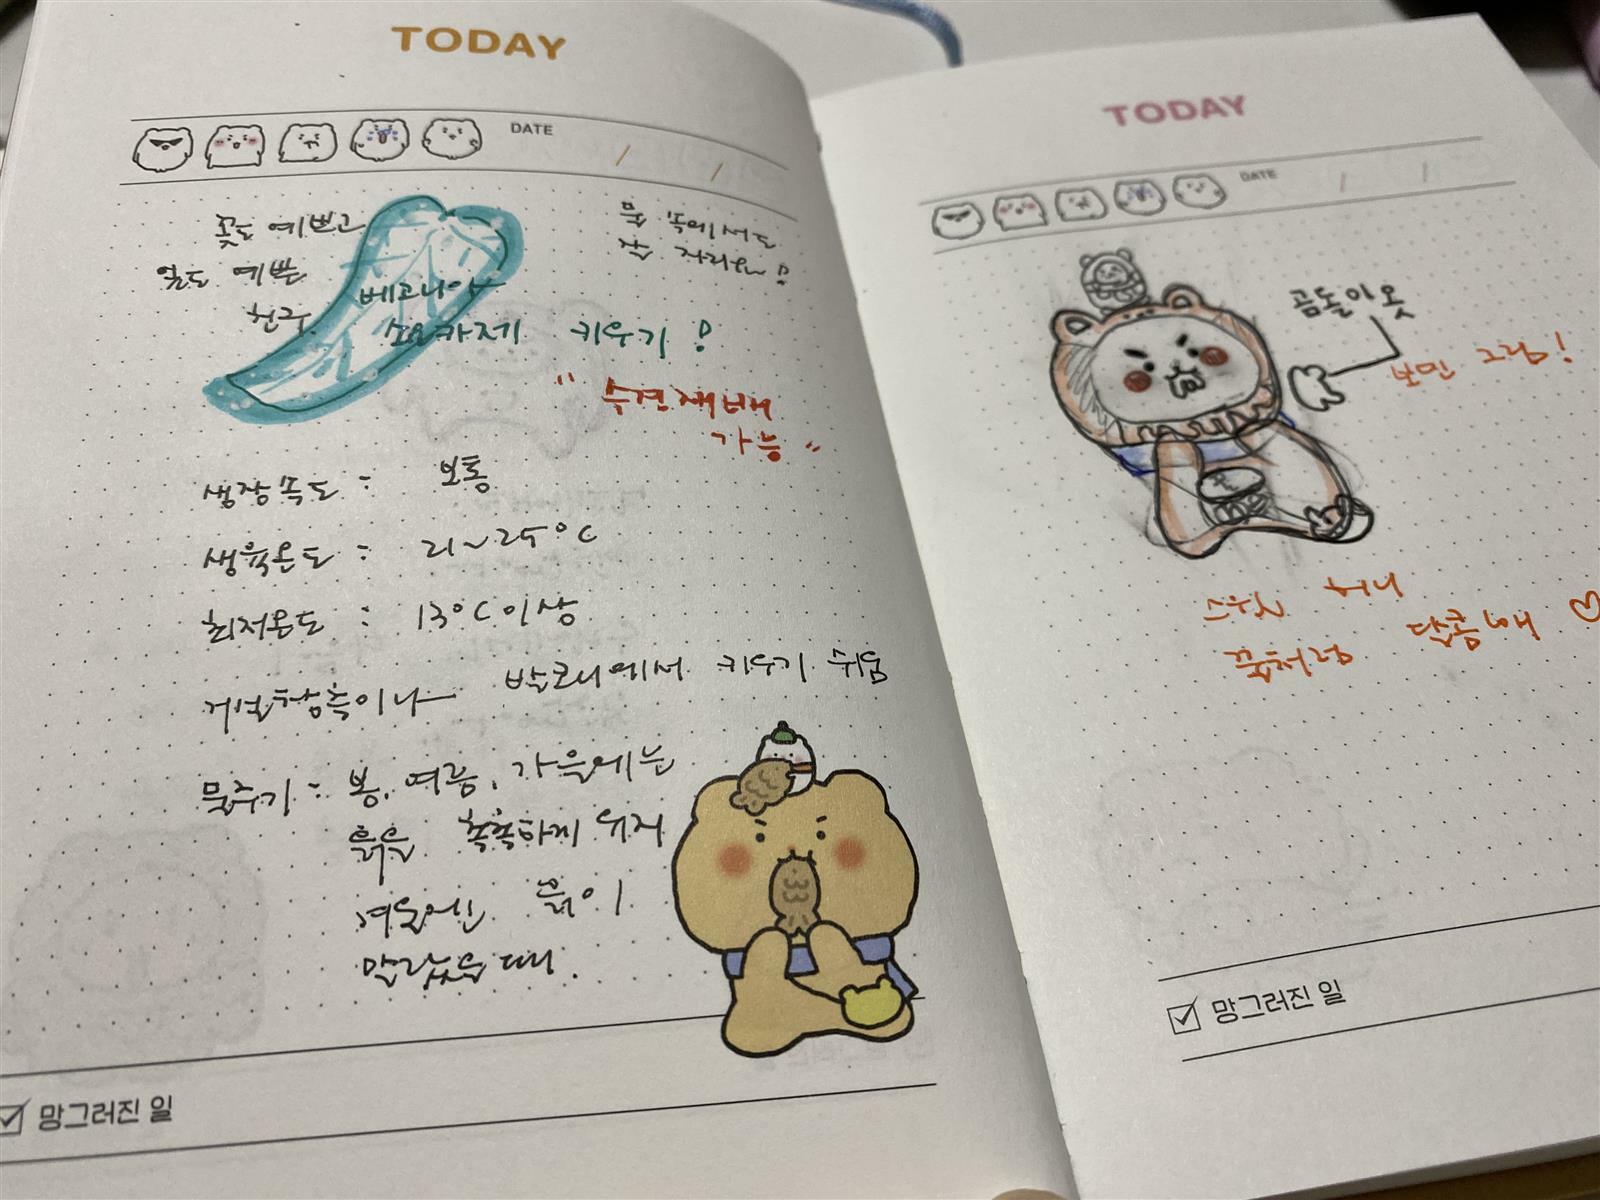 TODAY
DATE / /
꽃도 예쁘고
잎도 예쁜
친구.
물 속에서도
잘 자라요!
베고니아
소요카제 키우기!
"수경재배
가능"
생장속도 : 보통
생육온도 : 21~25°C
최저온도 : 13°C이상
거실창측이나 발코니에서 키우기 쉬움
물주기 : 봄, 여름, 가을에는
흙을 촉촉하게 유지
겨울에는 흙이
말랐을 때.
망그러진 일
TODAY
DATE / /
곰돌이 옷
보민 그림!
스윗 허니
꿀처럼 달콤해 ♡
망그러진 일